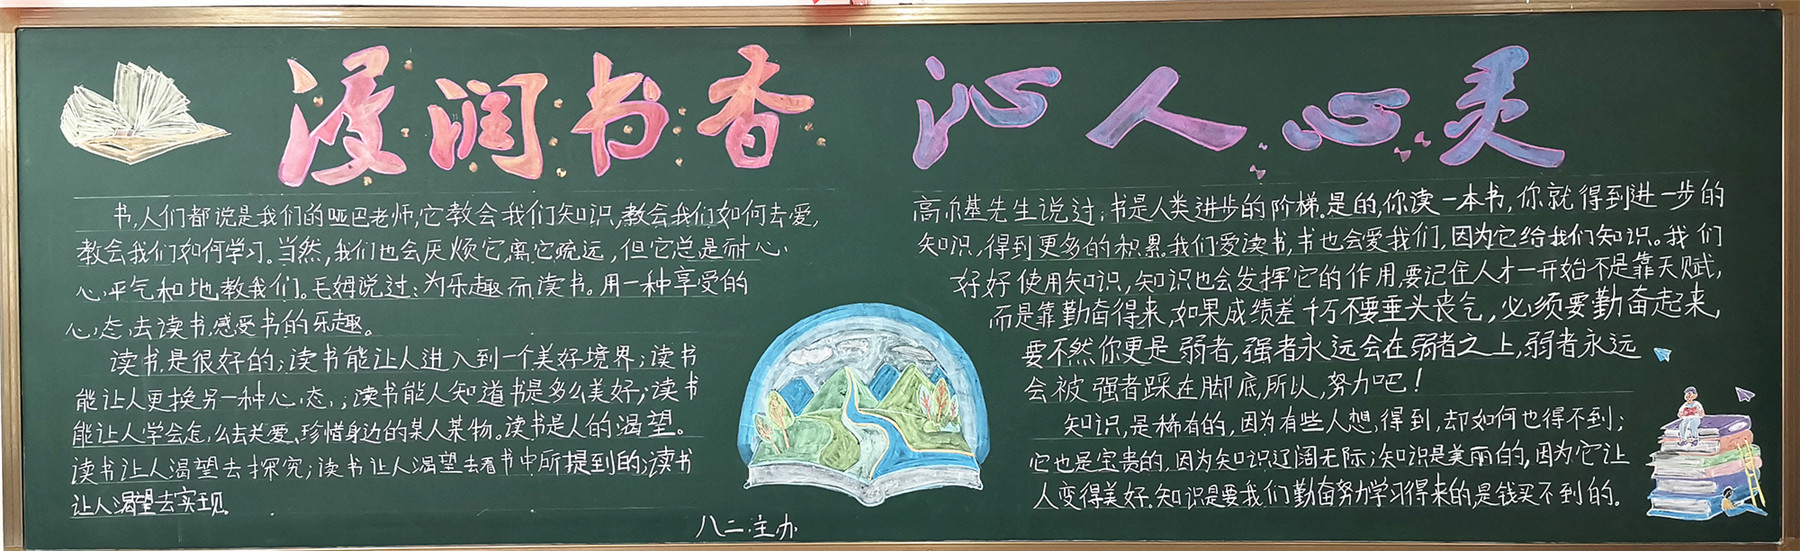 浸润书香 沁人心灵
书,人们都说是我们的哑巴老师,它教会我们知识,教会我们如何去爱,
教会我们如何学习。当然,我们也会厌烦它,离它疏远,但它总是耐心、
心平气和地教我们。毛姆说过:为乐趣而读书。用一种享受的
心态去读书,感受书的乐趣。
读书是很好的;读书能让人进入到一个美好境界;读书
能让人更换另一种心态;读书能人知道书是多么美好;读书
能让人学会怎么去关爱、珍惜身边的某人某物。读书是人的渴望。
读书让人渴望去探究;读书让人渴望去看书中所提到的;读书
让人渴望去实现。
八二主办
高尔基先生说过:书是人类进步的阶梯。是的,你读一本书,你就得到进一步的
知识,得到更多的积累。我们爱读书,书也会爱我们,因为它给我们知识。我们
好好使用知识,知识也会发挥它的作用,要记住人才一开始不是靠天赋,
而是靠勤奋得来,如果成绩差千万不要垂头丧气,必须要勤奋起来,
要不然你更是弱者,强者永远会在弱者之上,弱者永远
会被强者踩在脚底,所以,努力吧!
知识,是稀有的,因为有些人想得到,却如何也得不到;
它也是宝贵的,因为知识辽阔无际;知识是美丽的,因为它让
人变得美好。知识是要我们勤奋努力学习得来的,是钱买不到的。